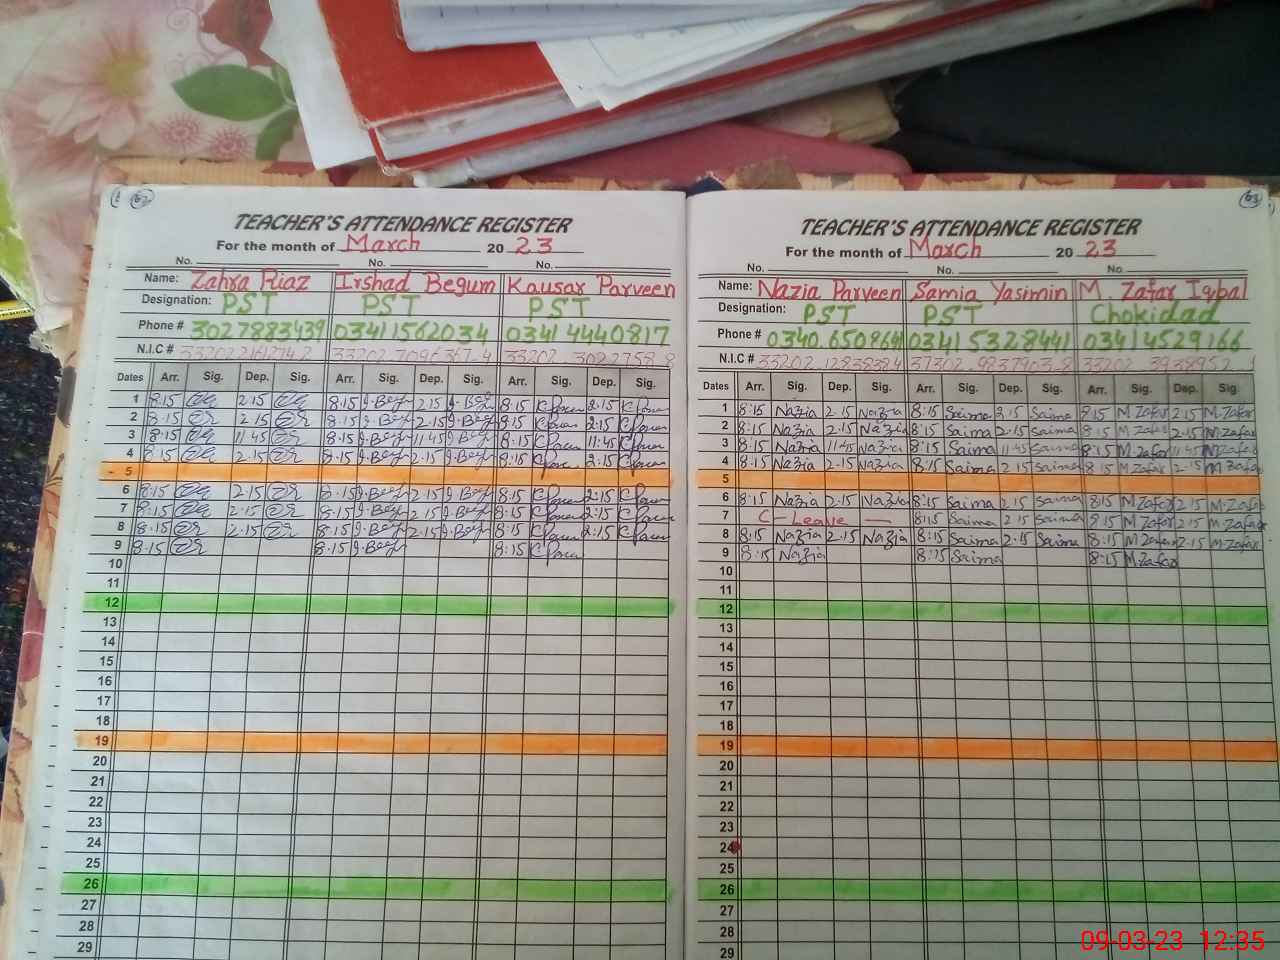 63
TEACHER'S ATTENDANCE REGISTER
For the month of March 20 23
No. No. No.
Name: Zahra Riaz Irshad Begum Kausar Parveen
Designation: PST PST PST
Phone # 3027883439 03411562034 03414440817
N.I.C #
Dates Arr. Sig. Dep. Sig. Arr. Sig. Dep. Sig. Arr. Sig. Dep. Sig.
1 8:15 2:15 8:15 2:15 8:15 2:15
2 8:15 2:15 8:15 2:15 8:15 2:15
3 8:15 11:45 8:15 11:45 8:15 11:45
4 8:15 2:15 8:15 2:15 8:15 2:15
5
6 8:15 2:15 8:15 2:15 8:15 2:15
7 8:15 2:15 8:15 2:15 8:15 2:15
8 8:15 2:15 8:15 2:15 8:15 2:15
9 8:15 8:15 8:15
10
11
12
13
14
15
16
17
18
19
20
21
22
23
24
25
26
27
28
29
TEACHER'S ATTENDANCE REGISTER
For the month of March 20 23
No. No. No.
Name: Nazia Parveen Samia Yasimin M. Zafar Iqbal
Designation: PST PST Chokidad
Phone # 03415328441 03414529166
N.I.C #
Dates Arr. Sig. Dep. Sig. Arr. Sig. Dep. Sig. Arr. Sig. Dep. Sig.
1 8:15 Nazia 2:15 Nazia 8:15 Saima 2:15 Saima 8:15 M Zafar 2:15 M.Zafar
2 8:15 Nazia 2:15 Nazia 8:15 Saima 2:15 Saima 8:15 M Zafar 2:15 M.Zafar
3 8:15 Nazia 11:45 Nazia 8:15 Saima 11:45 Saima 8:15 M.Zafar 11:45 M.Zafar
4 8:15 Nazia 2:15 Nazia 8:15 Saima 2:15 Saima 8:15 M Zafar 2:15 M Zafar
5
6 8:15 Nazia 2:15 Nazia 8:15 Saima 2:15 Saima 8:15 M Zafar 2:15 M.Zafar
7 C - Leave - 8:15 Saima 2:15 Saima 8:15 M Zafar 2:15 M.Zafar
8 8:15 Nazia 2:15 Nazia 8:15 Saima 2:15 Saima 8:15 M.Zafar 2:15 M.Zafar
9 8:15 Nazia 8:15 Saima 8:15 M.Zafar
10
11
12
13
14
15
16
17
18
19
20
21
22
23
24
25
26
27
28
29
09-03-23 12:35